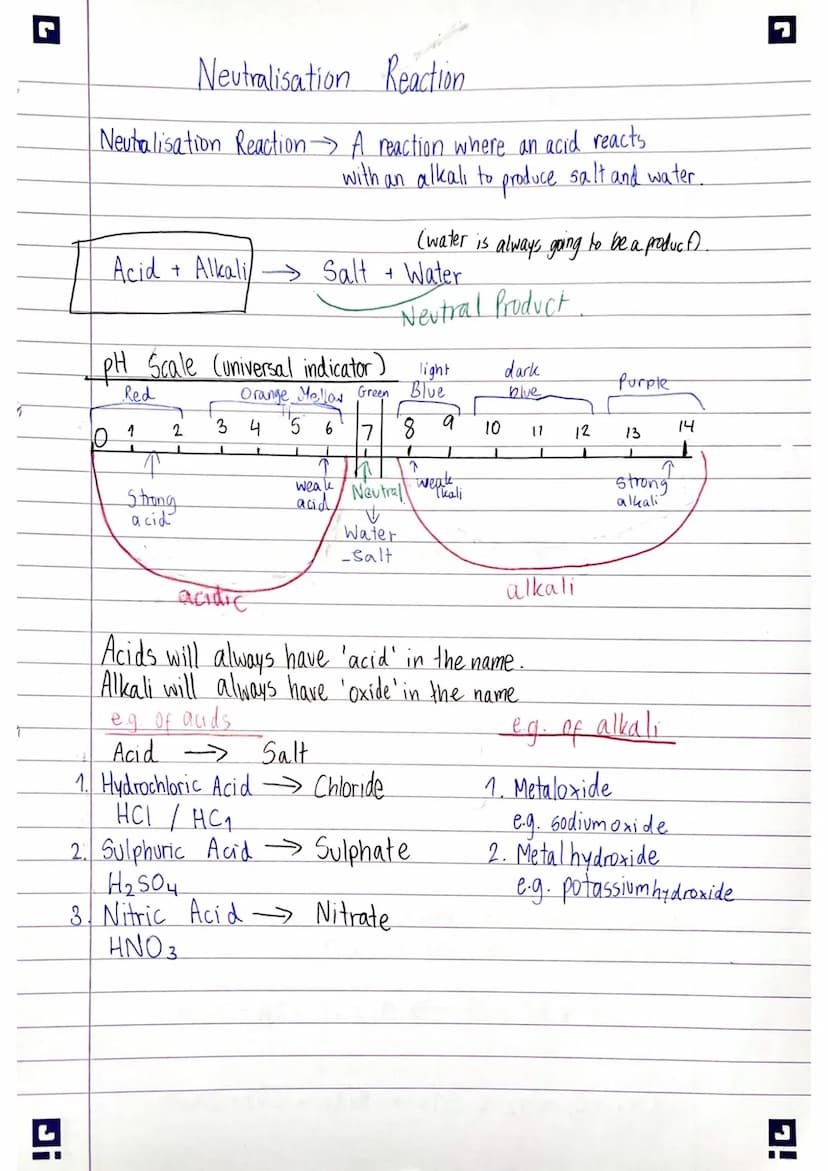 Neutralisation Reaction
Neutalisation Reaction → A reaction where an acid reacts
with an alkali to produce salt and water.
(water is always going to be a product).
Acid + Alkali → Salt + Water
Neutral Product.
pH Scale (universal indicator)
light dark
Red Orange Yellow Green Blue blue Purple
0 1 2 3 4 5 6 7 8 9 10 11 12 13 14
Strong acid
weak acid
Neutral
Water
-Salt
weak alkali
Strong alkali
acidic
alkali
Acids will always have 'acid' in the name.
Alkali will always have 'oxide' in the name
e.g. of acids
Acid → Salt
1. Hydrochloric Acid → Chloride
HCl / HC1
2. Sulphuric Acid → Sulphate
H2SO4
3. Nitric Acid → Nitrate
HNO3
e.g. of alkali
1. Metaloxide
e.g. sodium oxide
2. Metal hydroxide
e.g. potassium hydroxide